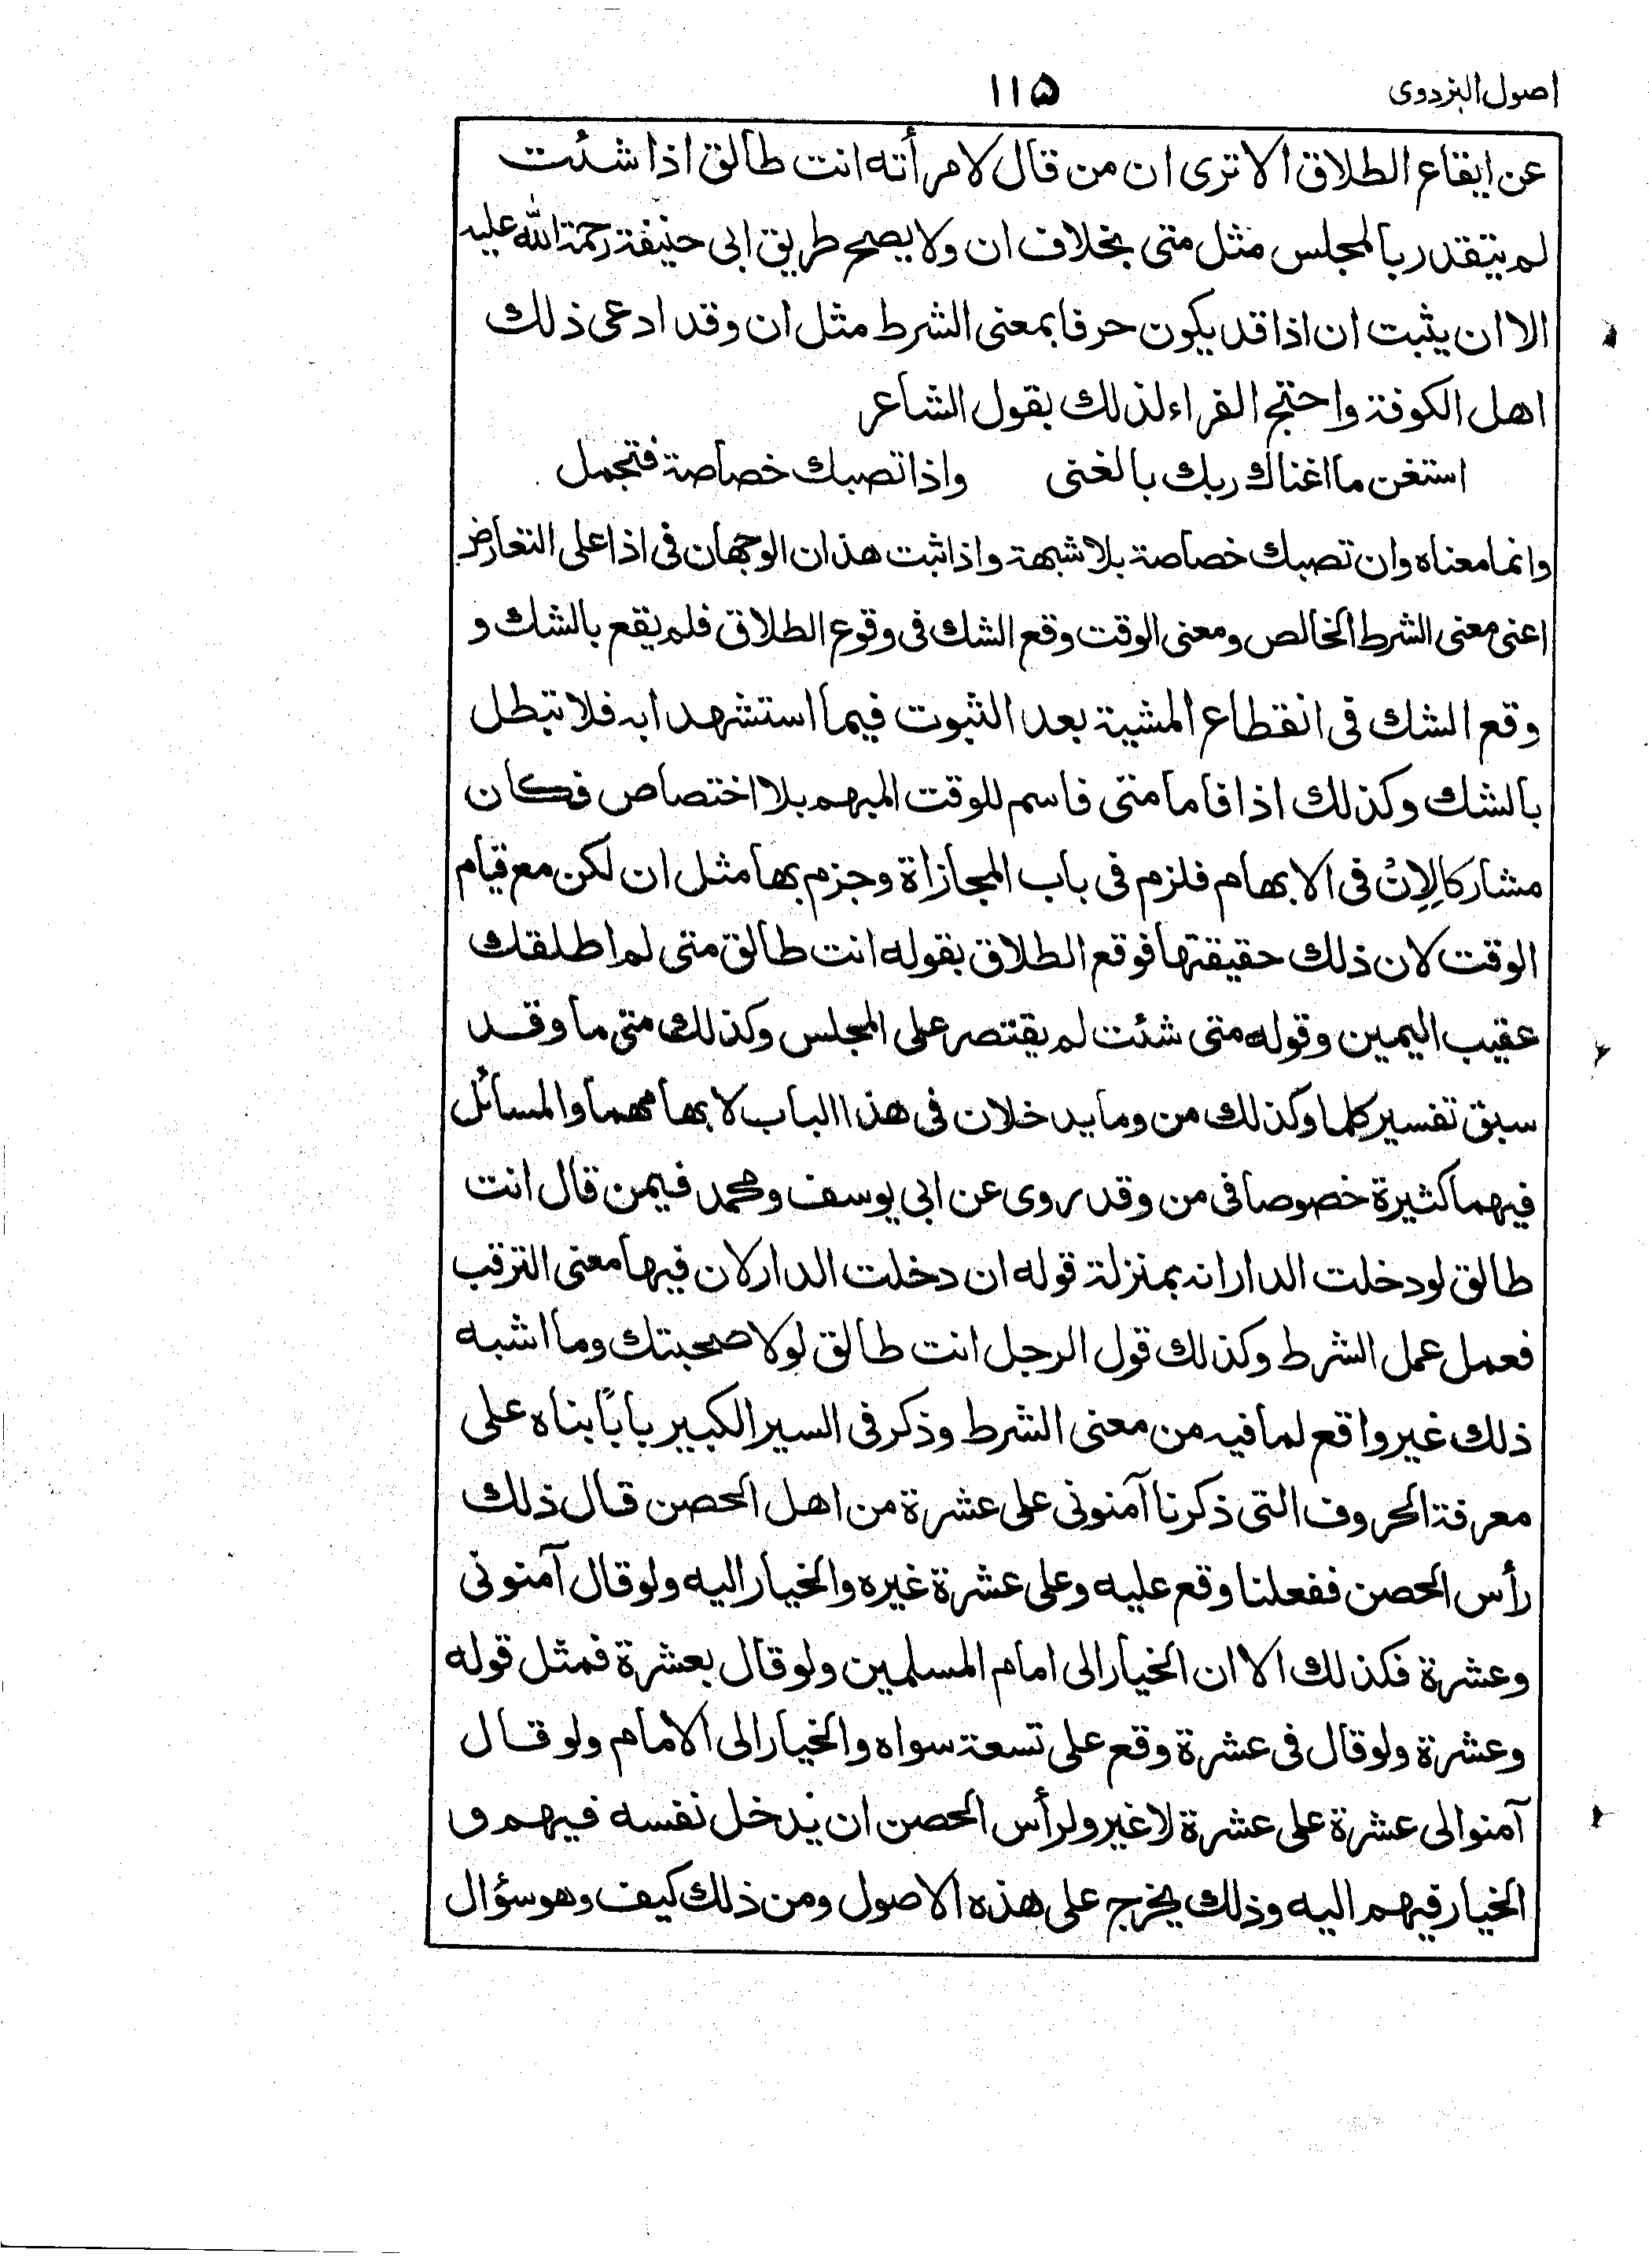 اصول البزدوی
١١٥
عن ايقاع الطلاق الا ترى ان من قال لامرأته انت طالق اذا شئت
لم يتقدر بالمجلس مثل متى بخلاف ان ولا يصح طريق ابى حنيفة رحمة الله عليه
الا ان يثبت ان اذا قد يكون حرفا بمعنى الشرط مثل ان وقد ادعى ذلك
اهل الكوفة واحتج الفراء لذلك بقول الشاعر
استغن ما اغناك ربك بالغنى واذا تصبك خصاصة فتجمل
وانما معناه وان تصبك خصاصة بلا شبهة واذا ثبت هذان الوجهان فى اذا على التعارض
اعنى معنى الشرط الخالص ومعنى الوقت وقع الشك فى وقوع الطلاق فلم يقع بالشك و
وقع الشك فى انقطاع المشية بعد الثبوت فيما استشهدا به فلا تبطل
بالشك وكذلك اذا فاما متى فاسم للوقت المبهم بلا اختصاص فكان
مشاركا لِاِنْ فى الابهام فلزم فى باب المجازاة وجزم بها مثل ان لكن مع قيام
الوقت لان ذلك حقيقتها فوقع الطلاق بقوله انت طالق متى لم اطلقك
عقيب اليمين وقوله متى شئت لم يقتصر على المجلس وكذلك متى ما وقد
سبق تفسير كلما وكذلك من وما يدخلان فى هذا الباب لابهامهما والمسائل
فيهما كثيرة خصوصا فى من وقد روى عن ابى يوسف ومحمد فيمن قال انت
طالق لو دخلت الدار انه بمنزلة قوله ان دخلت الدار لان فيها معنى الترقب
فعمل عمل الشرط وكذلك قول الرجل انت طالق لولا صحبتك وما اشبه
ذلك غير واقع لما فيه من معنى الشرط وذكر فى السير الكبير باباً بناه على
معرفة الحروف التى ذكرنا آمنونى على عشرة من اهل الحصن قال ذلك
رأس الحصن ففعلنا وقع عليه وعلى عشرة غيره والخيار اليه ولو قال آمنونى
وعشرة فكذلك الا ان الخيار الى امام المسلمين ولو قال بعشرة فمثل قوله
وعشرة ولو قال فى عشرة وقع على تسعة سواه والخيار الى الامام ولو قال
آمنوا لى عشرة على عشرة لا غير ولرأس الحصن ان يدخل نفسه فيهم و
الخيار فيهم اليه وذلك يخرج على هذه الاصول ومن ذلك كيف وهو سؤال